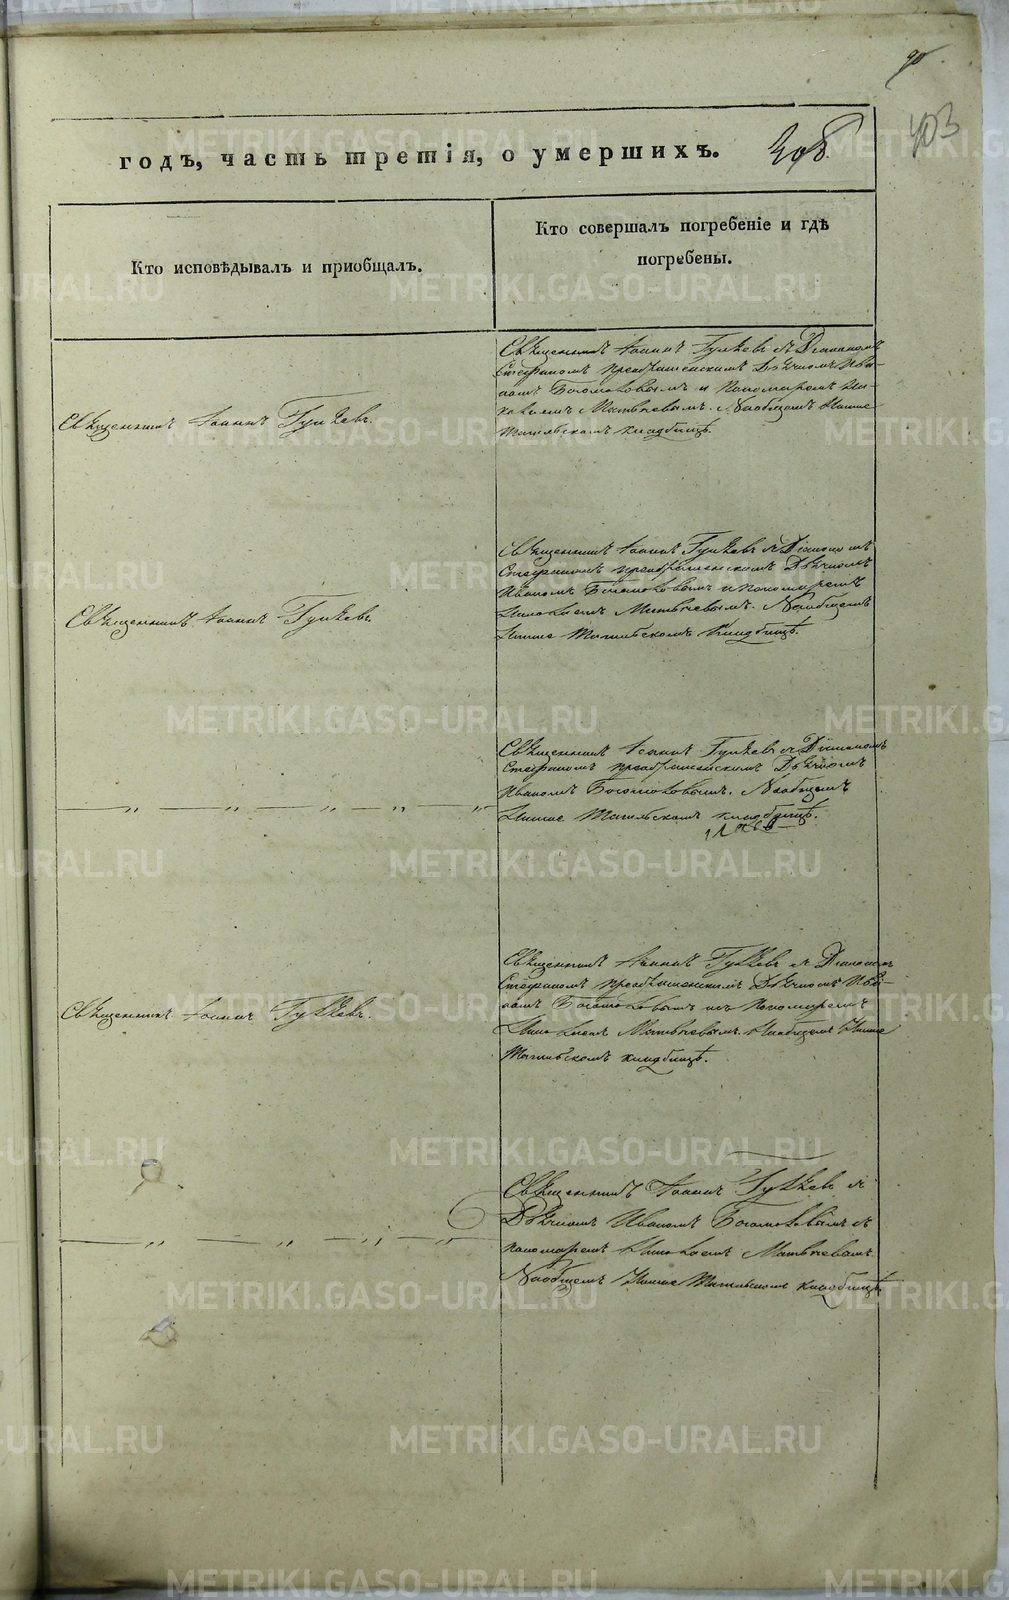 годъ, часть третія, о умершихъ.
403
Кто исповѣдывалъ и приобщалъ.
Кто совершалъ погребеніе и гдѣ
погребены.
Священникъ Іоаннъ
Священникъ Іоаннъ съ Діакономъ
Стефаномъ Преображенскимъ Дьячкомъ Ива-
номъ Богомоловымъ и Пономаремъ Ни-
колаемъ Матвѣевымъ. На общемъ Нижне
Тагильскомъ кладбищѣ.
Священникъ Іоаннъ
Священникъ Іоаннъ съ Діакономъ
Стефаномъ Преображенскимъ Дьячкомъ
Иваномъ Богомоловымъ и пономаремъ
Николаемъ Матвѣевымъ. На общемъ
Нижне Тагильскомъ кладбищѣ.
Священникъ Іоаннъ съ Діакономъ
Стефаномъ Преображенскимъ Дьячкомъ
Иваномъ Богомоловымъ. На общемъ
Нижне Тагильскомъ кладбищѣ.
Священникъ Іоаннъ
Священникъ Іоаннъ съ Діакономъ
Стефаномъ Преображенскимъ Дьячкомъ Ива-
номъ Богомоловымъ и Пономаремъ
Николаемъ Матвѣевымъ. На общемъ Нижне
Тагильскомъ кладбищѣ.
Священникъ Іоаннъ съ
Дьячкомъ Иваномъ Богомоловымъ и
пономаремъ Николаемъ Матвѣевымъ
На общемъ Нижне Тагильскомъ кладбищѣ.
METRIKI.GASO-URAL.RU